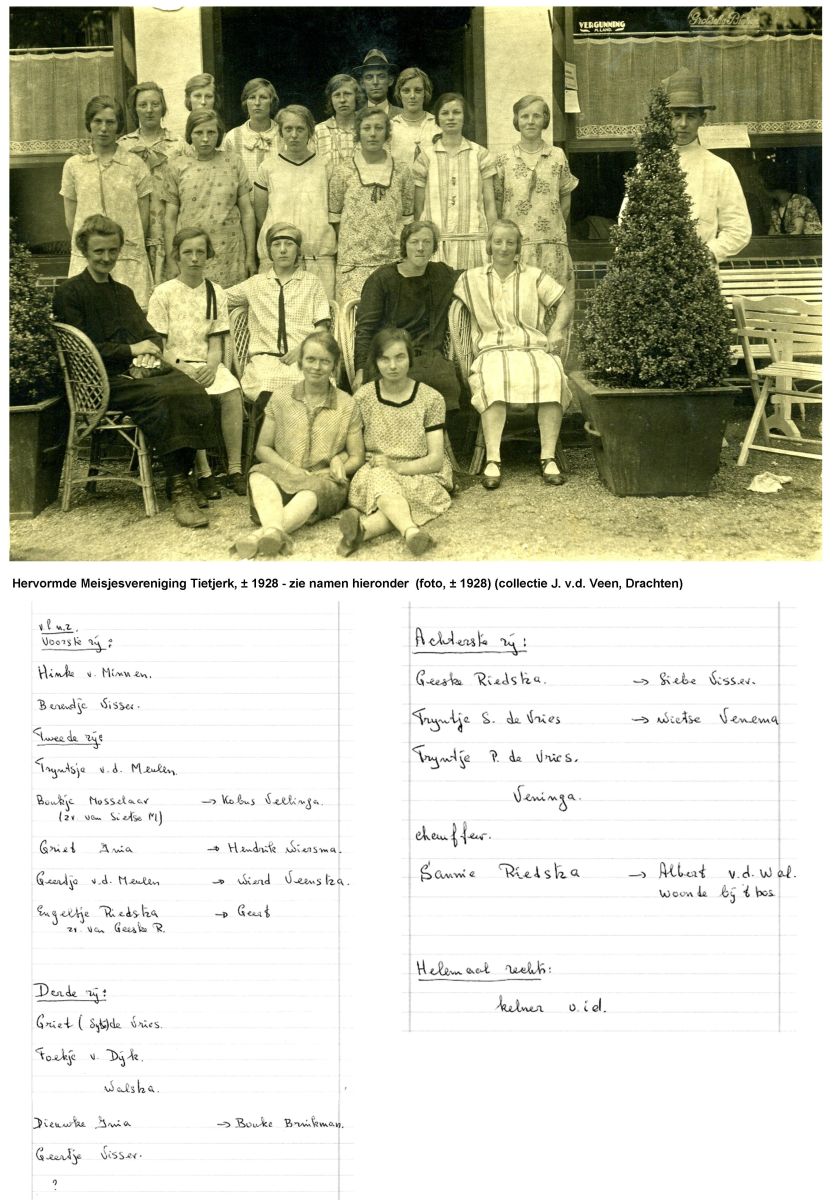 VERGUNNING
Hervormde Meisjesvereniging Tietjerk, ± 1928 - zie namen hieronder (foto, ± 1928) (collectie J. v.d. Veen, Drachten)
v.l.n.r.
Voorste rij:
Hinke v. Minnen.
Berendje Visser.
Tweede rij:
Tryntsje v.d. Meulen.
Boukje Mosselaar → Kobus Vellinga.
(zr. van Sietse M)
Griet Inia → Hendrik Wiersma.
Geertje v.d. Meulen → Wierd Veenstra.
Engeltje Riedstra → Geert
zr. van Geeske R.
Derde rij:
Griet ( de Vries.
Foekje v. Dijk.
Walstra.
Dieuwke Inia → Bouke Brinkman.
Geertje Visser.
?
Achterste rij:
Geeske Riedstra. → Siebe Visser.
Tryntje S. de Vries → Wietse Venema
Tryntje P. de Vries.
Veninga.
chauffeur.
Sannie Riedstra → Albert v.d. Wal.
woonde bij 't bos
Helemaal rechts:
kelner o.i.d.